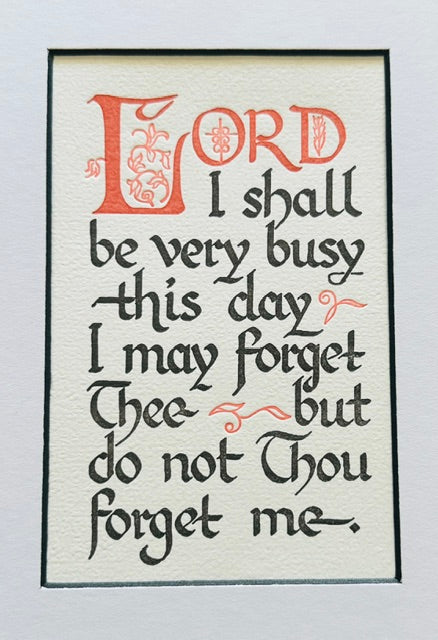 LORD
I shall
be very busy
this day
I may forget
Thee but
do not Thou
forget me.